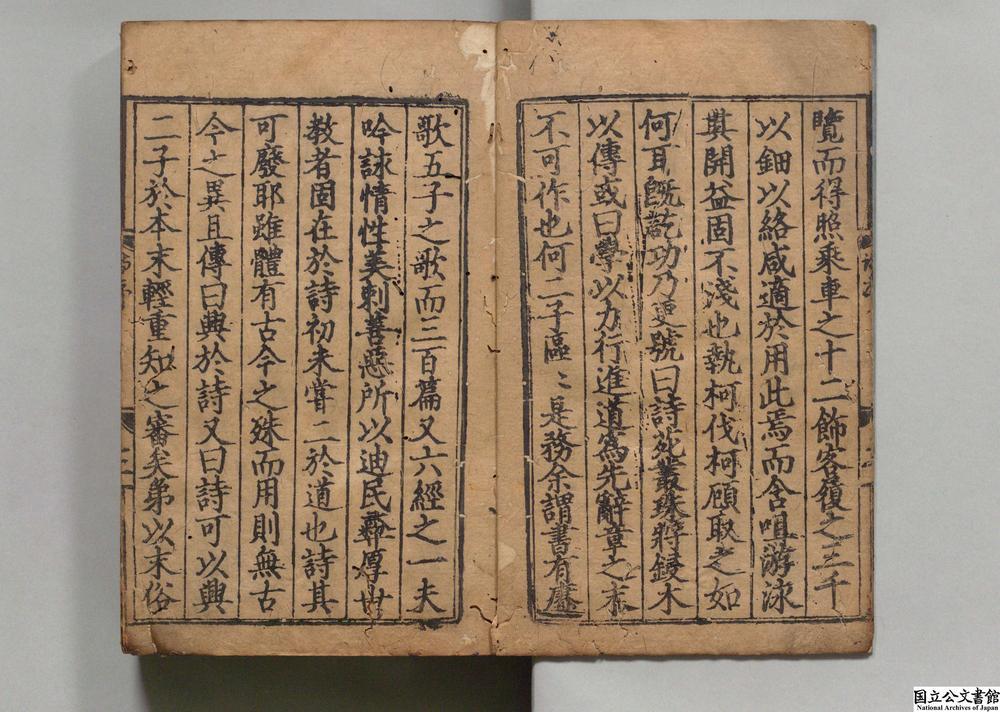 覽而得照乗車之十二飾客履之三千
以鈿以絡咸適於用此焉而含咀游泳
其開益固不淺也執柯伐柯顧取之如
何耳既訖功乃更號曰詩苑叢珠將鋟木
以傳或曰學以力行進道爲先辭章之末
不可作也何二子區〻是務余謂書有賡
歌五子之歌而三百篇又六經之一夫
吟詠情性美刺善惡所以迪民彝厚世
教者固在於詩初未嘗二於道也詩其
可廢耶雖體有古今之殊而用則無古
今之異且傳曰興於詩又曰詩可以興
二子於本末輕重知之審矣第以末俗
国立公文書館
National Archives of Japan